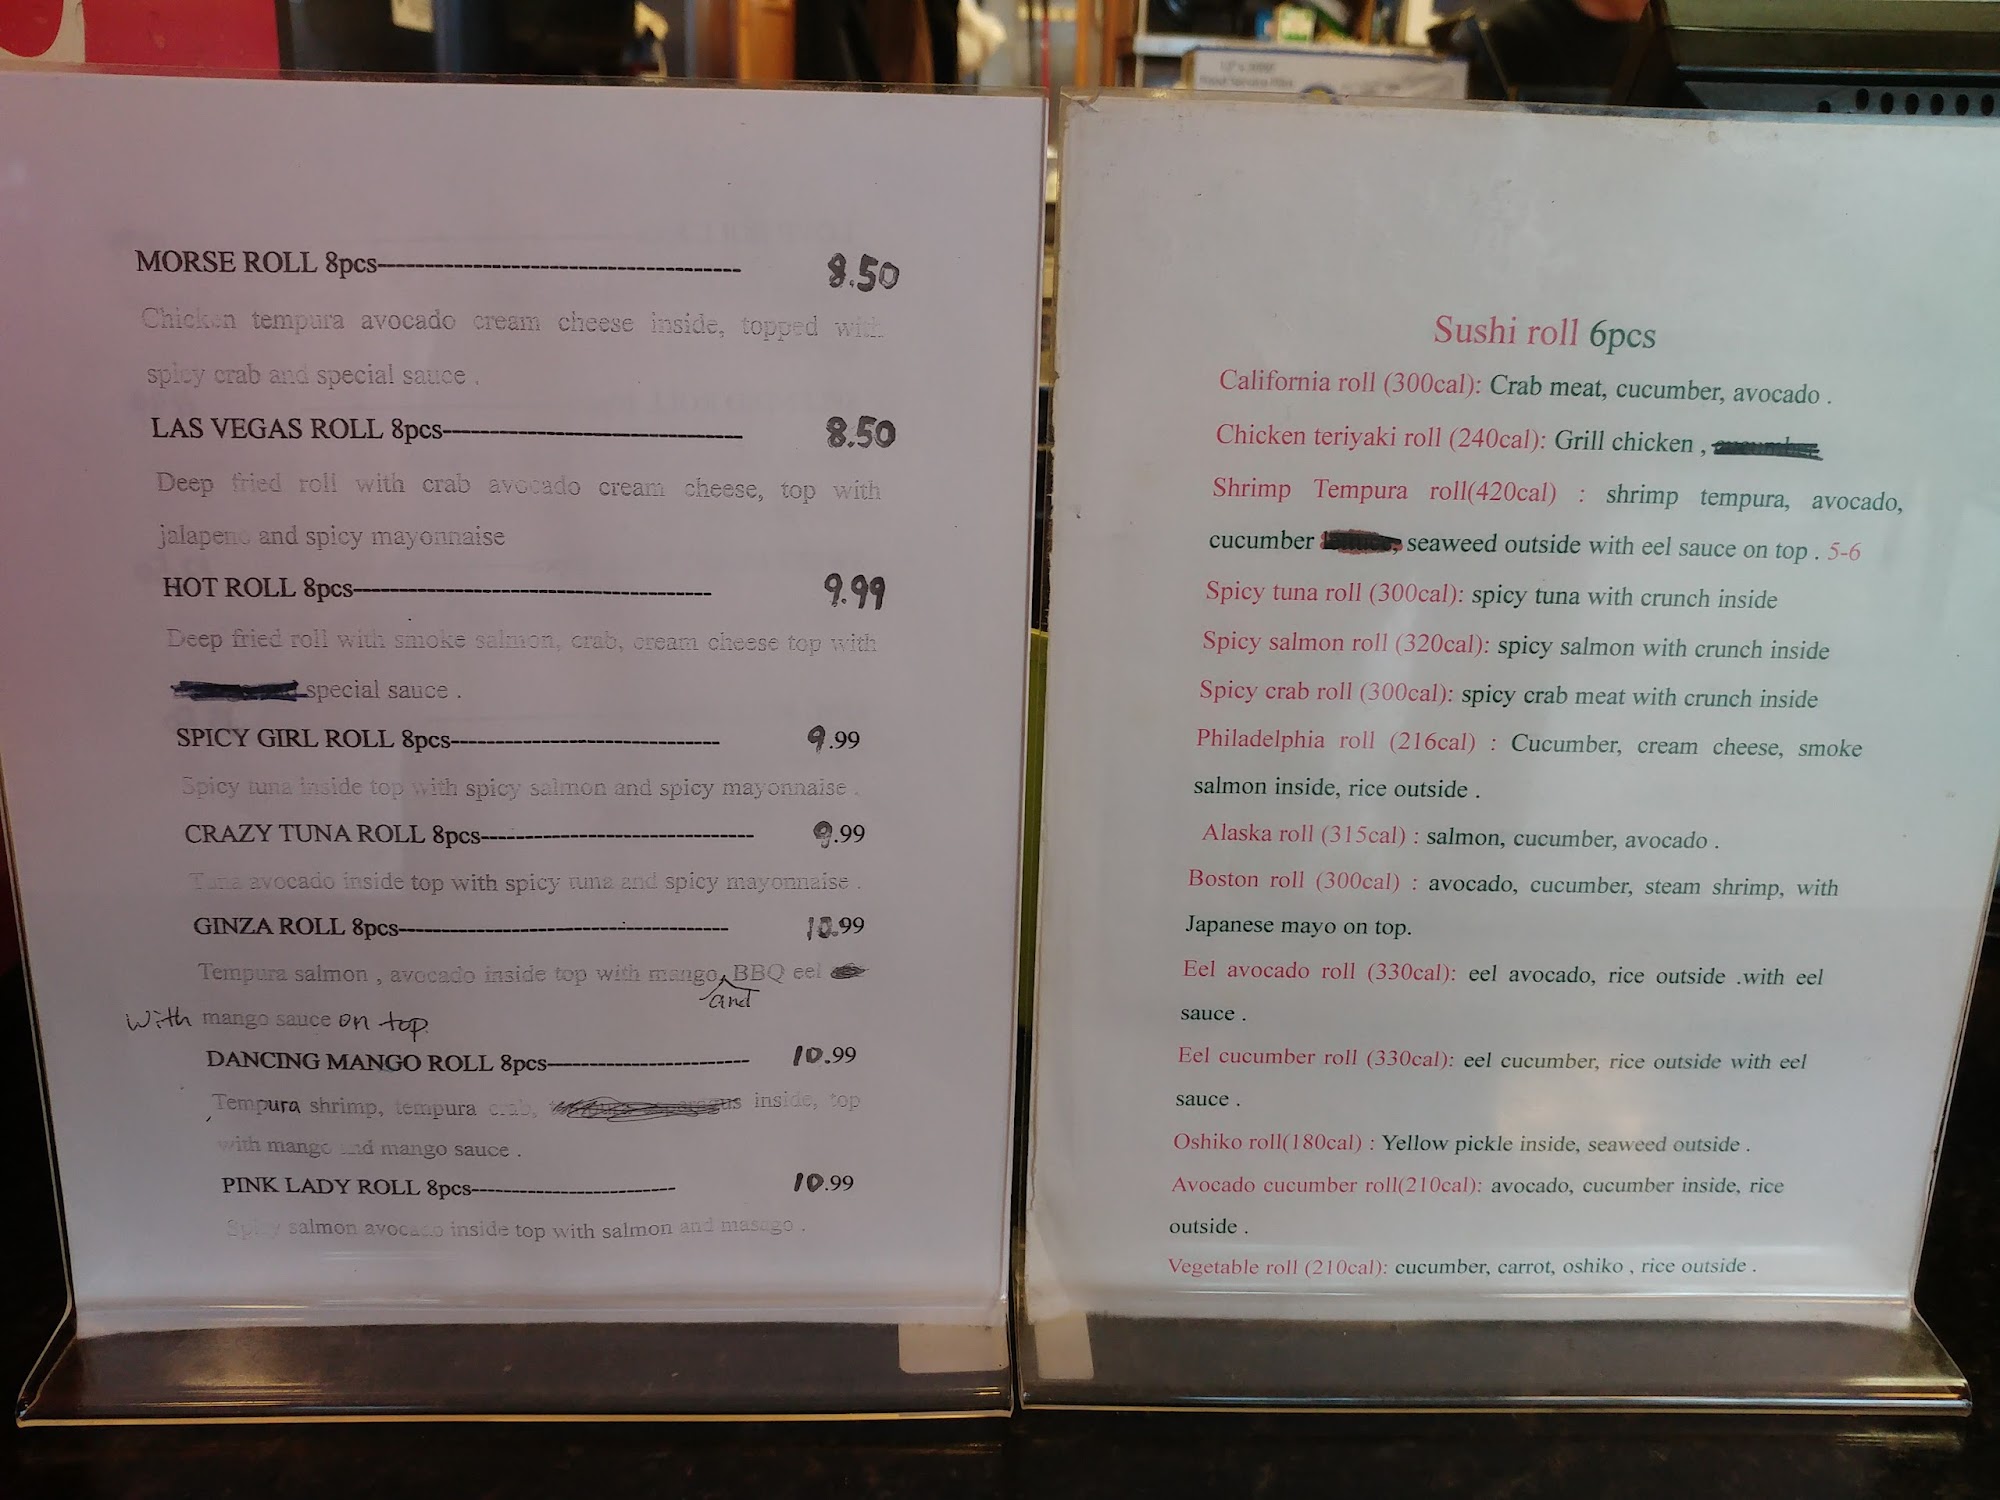 MORSE ROLL 8pcs--------------------------------------- 8.50
Chicken tempura avocado cream cheese inside, topped with
spicy crab and special sauce .
LAS VEGAS ROLL 8pcs-------------------------------- 8.50
Deep fried roll with crab avocado cream cheese, top with
jalapeno and spicy mayonnaise
HOT ROLL 8pcs-------------------------------------- 9.99
Deep fried roll with smoke salmon, crab, cream cheese top with
special sauce .
SPICY GIRL ROLL 8pcs----------------------------- 9.99
Spicy tuna inside top with spicy salmon and spicy mayonnaise .
CRAZY TUNA ROLL 8pcs----------------------------- 9.99
Tuna avocado inside top with spicy tuna and spicy mayonnaise .
GINZA ROLL 8pcs----------------------------------- 10.99
Tempura salmon , avocado inside top with mango, BBQ eel
and
with mango sauce on top.
DANCING MANGO ROLL 8pcs---------------------- 10.99
Tempura shrimp, tempura crab, inside, top
with mango and mango sauce .
PINK LADY ROLL 8pcs---------------------- 10.99
Spicy salmon avocado inside top with salmon and masago .
Sushi roll 6pcs
California roll (300cal): Crab meat, cucumber, avocado .
Chicken teriyaki roll (240cal): Grill chicken ,
Shrimp Tempura roll(420cal) : shrimp tempura, avocado,
cucumber seaweed outside with eel sauce on top . 5-6
Spicy tuna roll (300cal): spicy tuna with crunch inside
Spicy salmon roll (320cal): spicy salmon with crunch inside
Spicy crab roll (300cal): spicy crab meat with crunch inside
Philadelphia roll (216cal) : Cucumber, cream cheese, smoke
salmon inside, rice outside .
Alaska roll (315cal) : salmon, cucumber, avocado .
Boston roll (300cal) : avocado, cucumber, steam shrimp, with
Japanese mayo on top.
Eel avocado roll (330cal): eel avocado, rice outside .with eel
sauce .
Eel cucumber roll (330cal): eel cucumber, rice outside with eel
sauce .
Oshiko roll(180cal) : Yellow pickle inside, seaweed outside .
Avocado cucumber roll(210cal): avocado, cucumber inside, rice
outside .
Vegetable roll (210cal): cucumber, carrot, oshiko , rice outside .